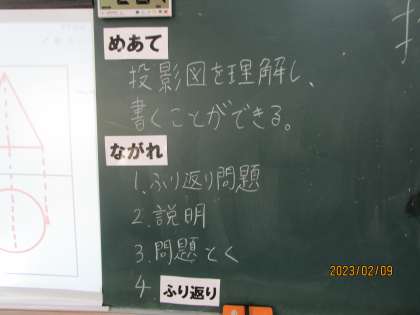 めあて
投影図を理解し、
書くことができる。
ながれ
1.ふり返り問題
2.説明
3.問題とく
4.ふり返り
2023/02/09